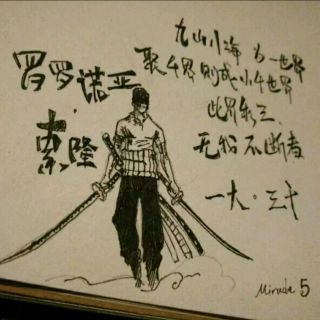 罗罗诺亚
索隆
九山川海 为一世界
聚千界则成小千世界
此界乘三
无物不断者
一大·三千
Miracle 5